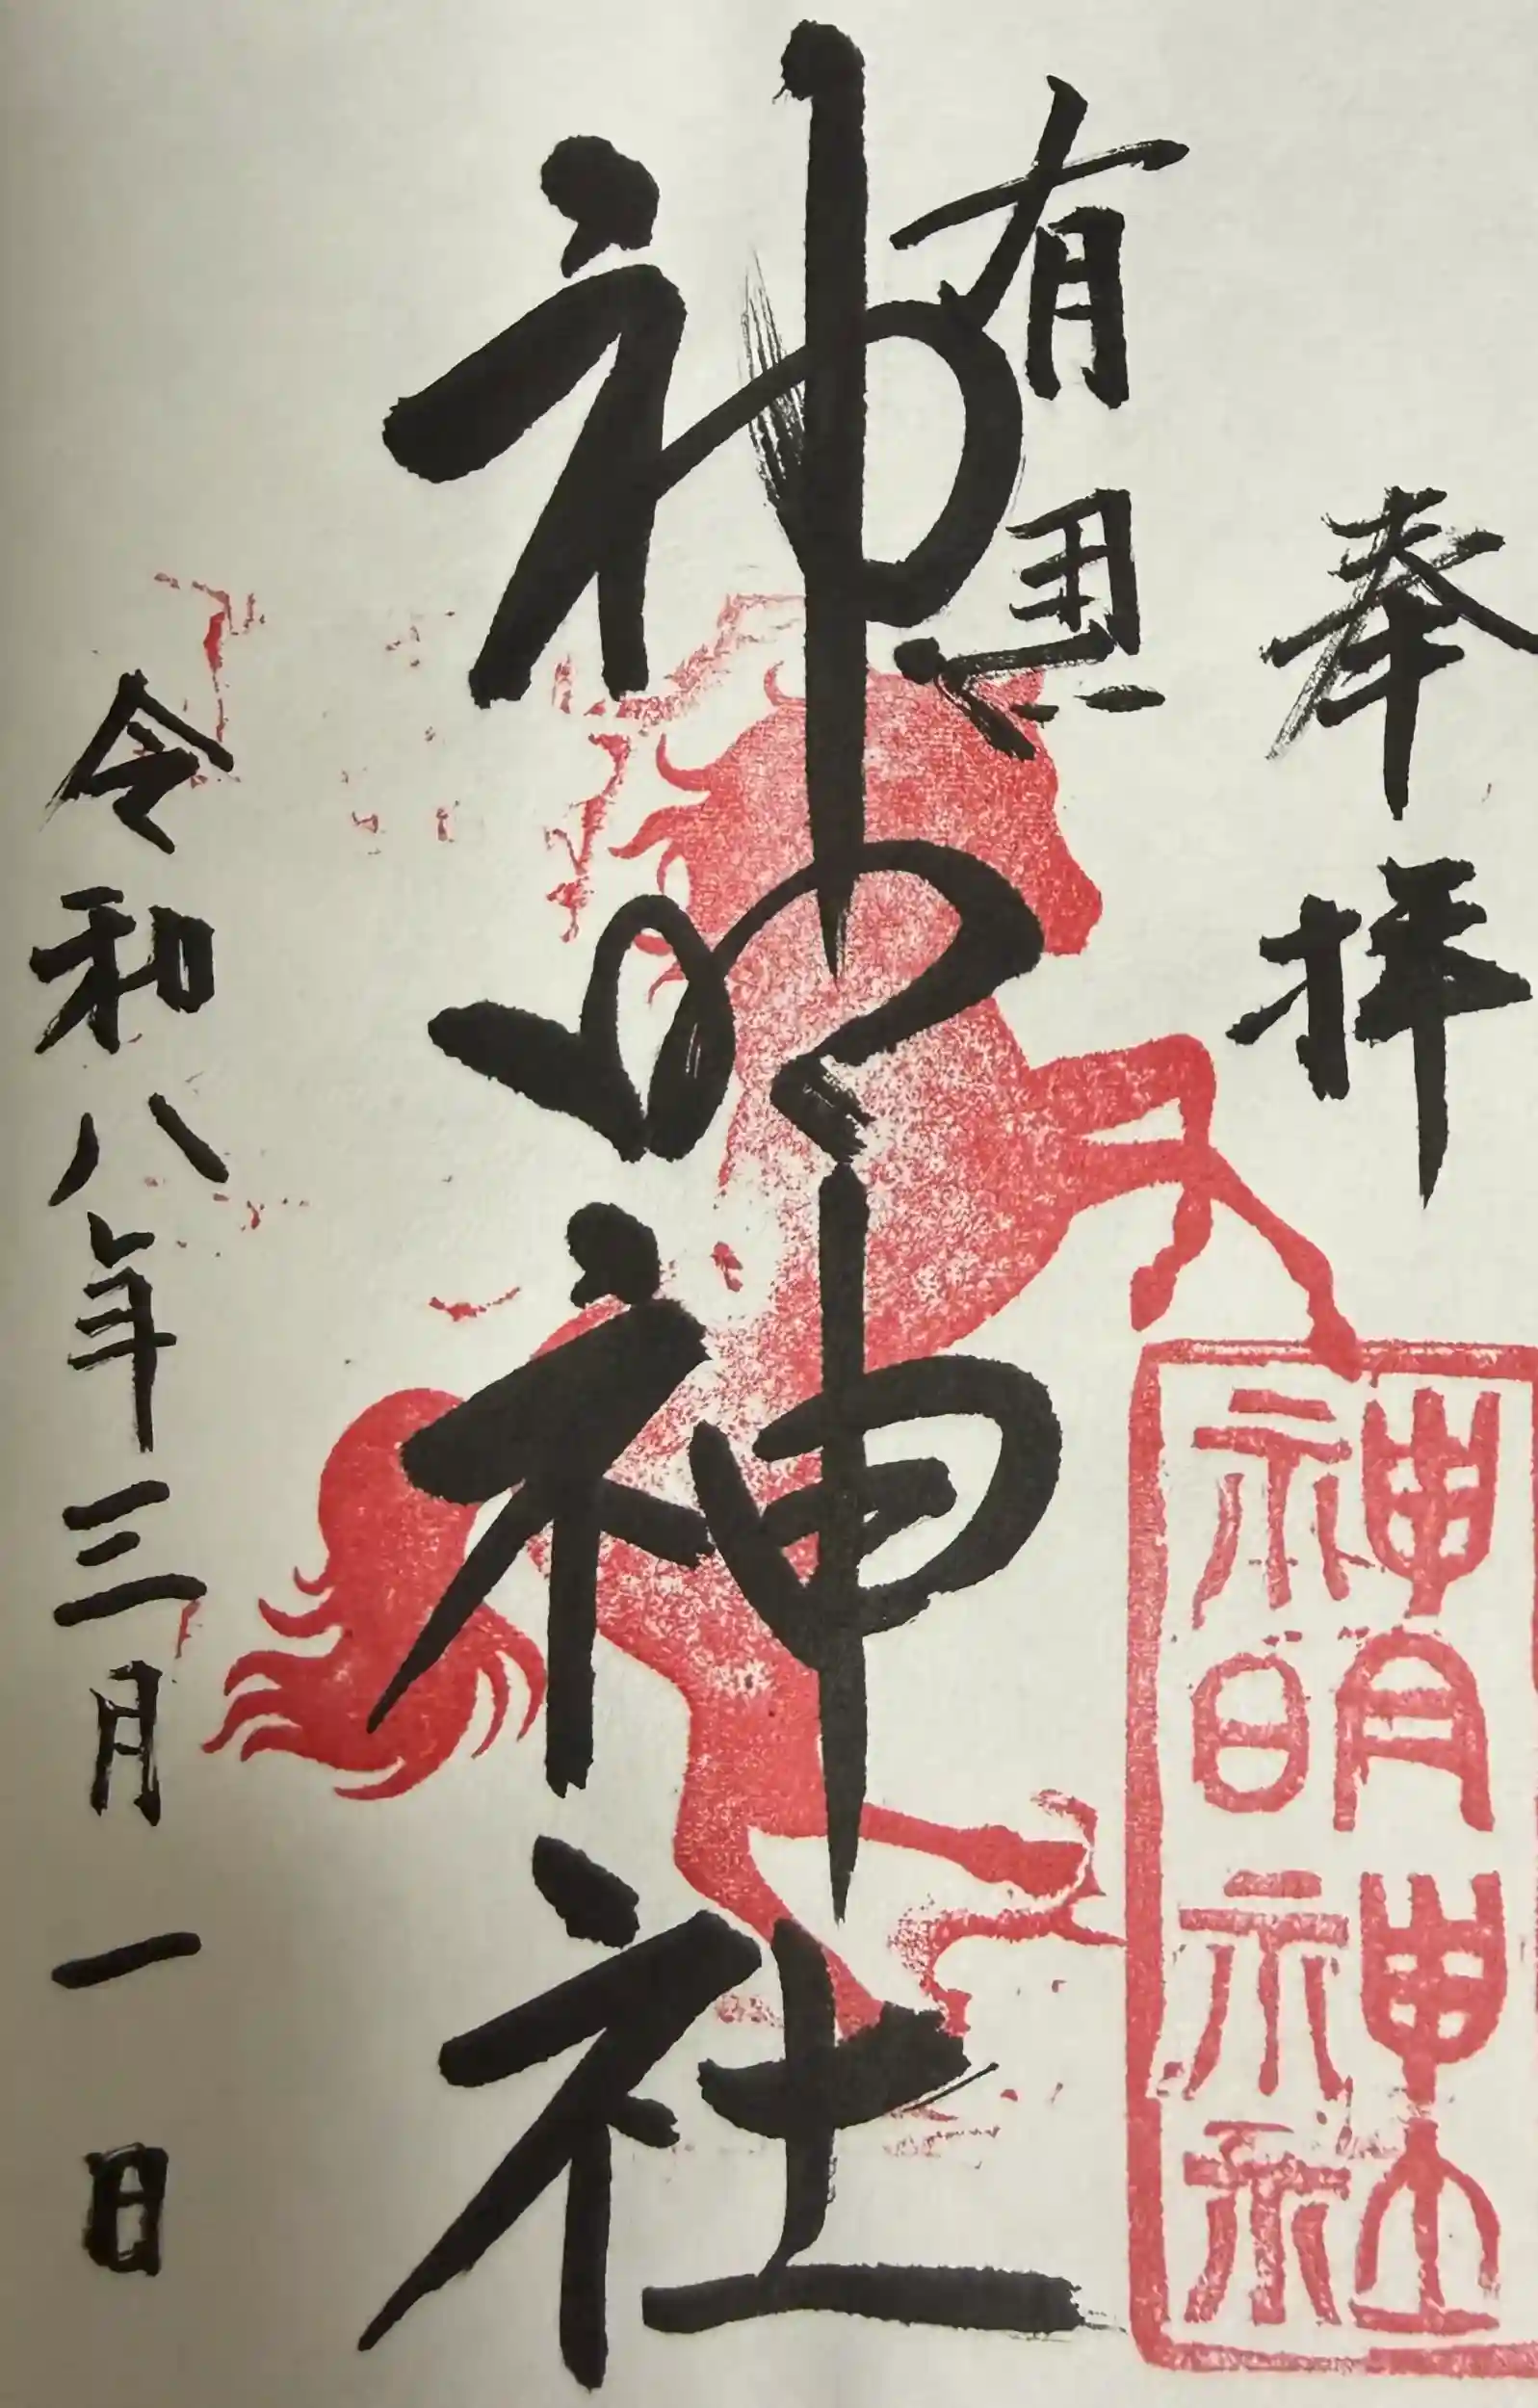 奉拝
有馬
神明神社
令和八年三月一日
神明神社